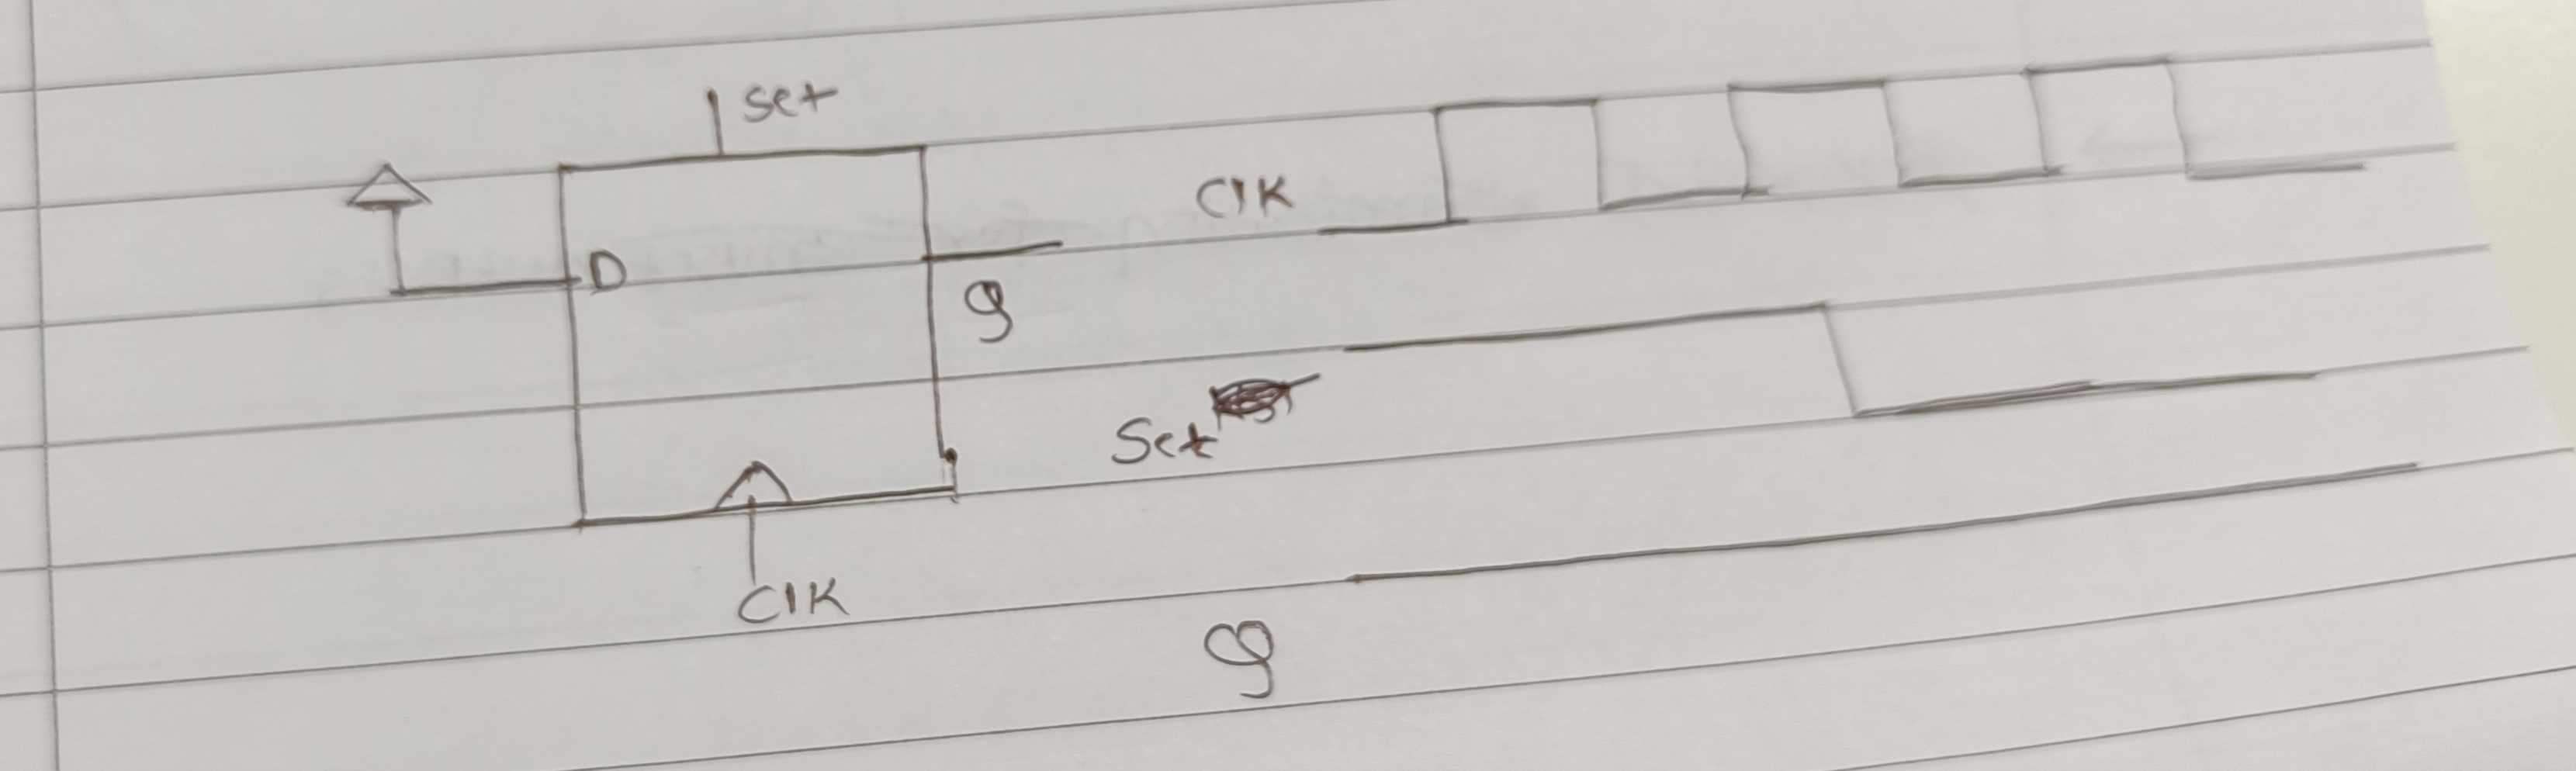 Set
D
Q
CLK
CLK
Set
Q